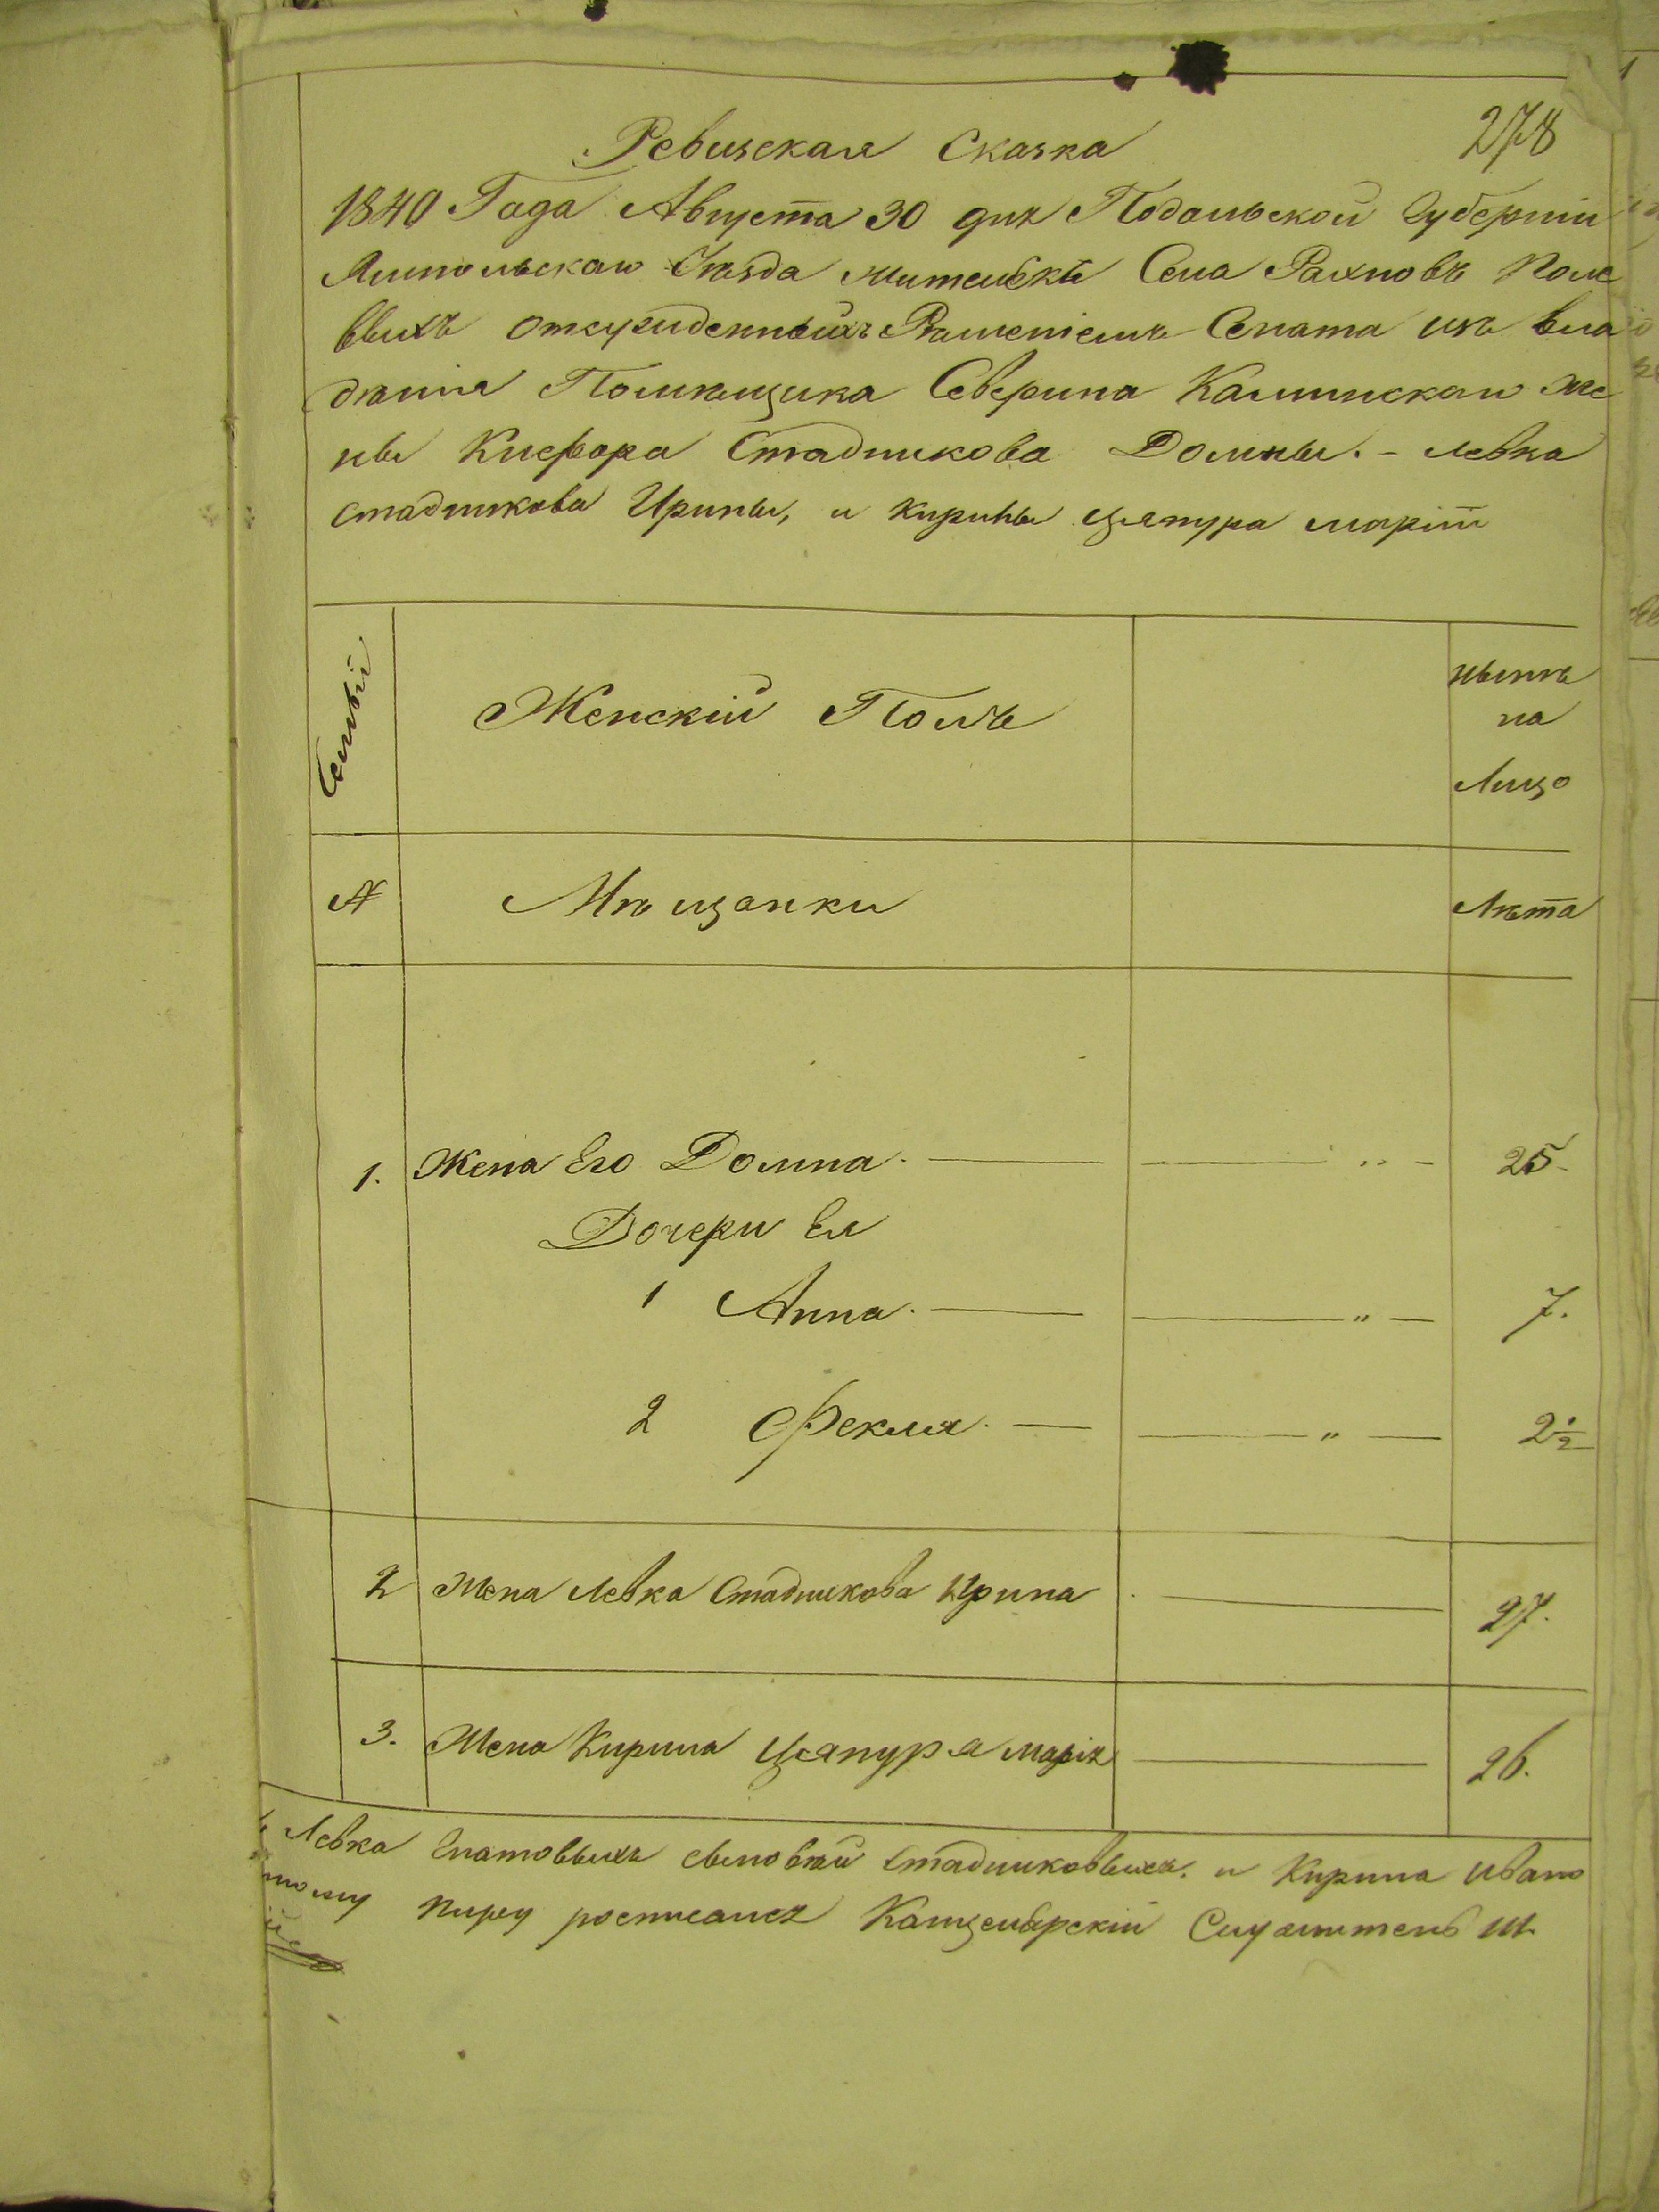 Ревизская Сказка
278
1840 Года Августа 30 дня Подольской Губерніи
Ямпольскаго Уѣзда жительки Села Рахновъ Поле
выхъ отсужденныхъ Рѣшеніемъ Сената изъ вла
дѣнія Помѣщика Северина Калинскаго же
ны Кисфора Стадникова Домны. - Левка
Стадникова Ирины, и Кирилы Цяпура маріи
Семьи
Женскій Полъ
нынѣ
на
Лицо
№
Мѣщанки
Лѣта
1. Жена Его Домна. — — „ — 25
Дочери Ея
1 Анна. — — „ — 7.
2 Фекля. — — „ — 2½
2 Жена Левка Стадникова Ирина — 27.
3. Жена Кирила Цяпура марія — 26.
Левка Игнатовыхъ сыновѣй Стадниковыхъ. и Кирила Ивано
росписался Канцелярскій Служитель